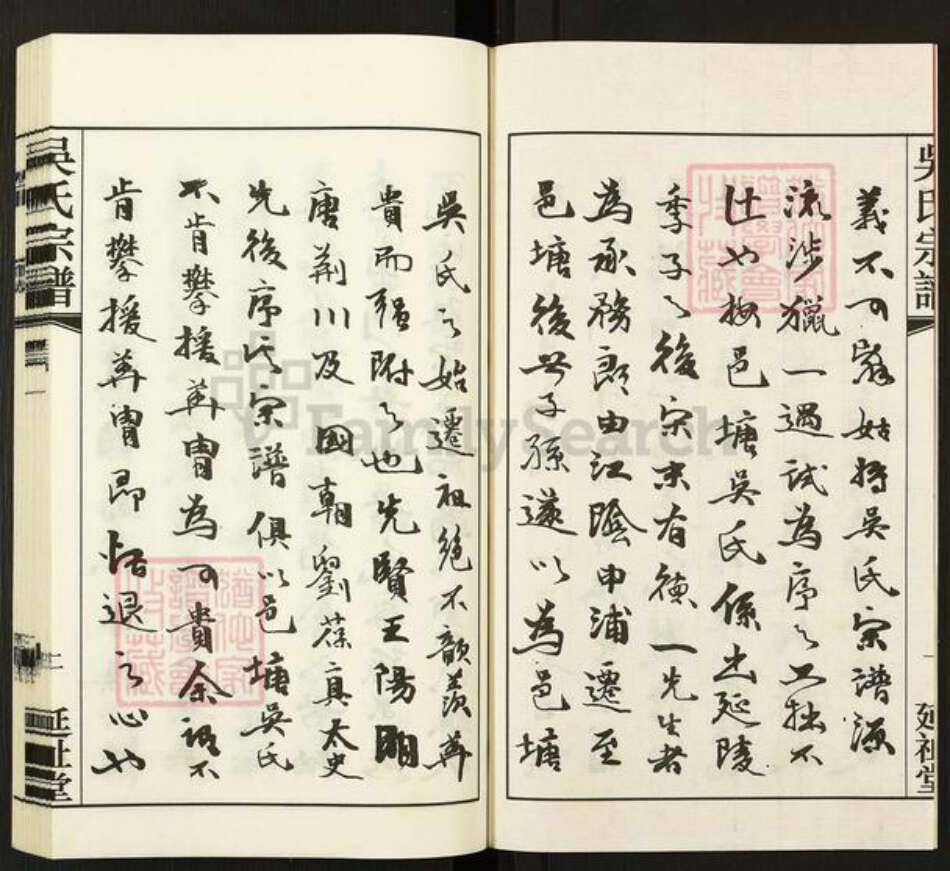 義不可辭姑將吳氏宗譜源
流涉獵一過試為序之工拙不
計也按邑塘吳氏係出延陵
季子之後宋末有德一先生者
為承務郎由江陰申浦遷至
邑塘後世子孫遂以為邑塘
吳氏宗譜
延祉堂
吳氏之始遷祖絕不歆羨華
貴而強附之也先賢王陽明
唐荊川及國朝劉葆真太史
先後序其宗譜俱以邑塘吳氏
不肯攀援華冑為可貴余謂不
肯攀援華冑即恬退之心也
吳氏宗譜
二
延祉堂
FamilySearch